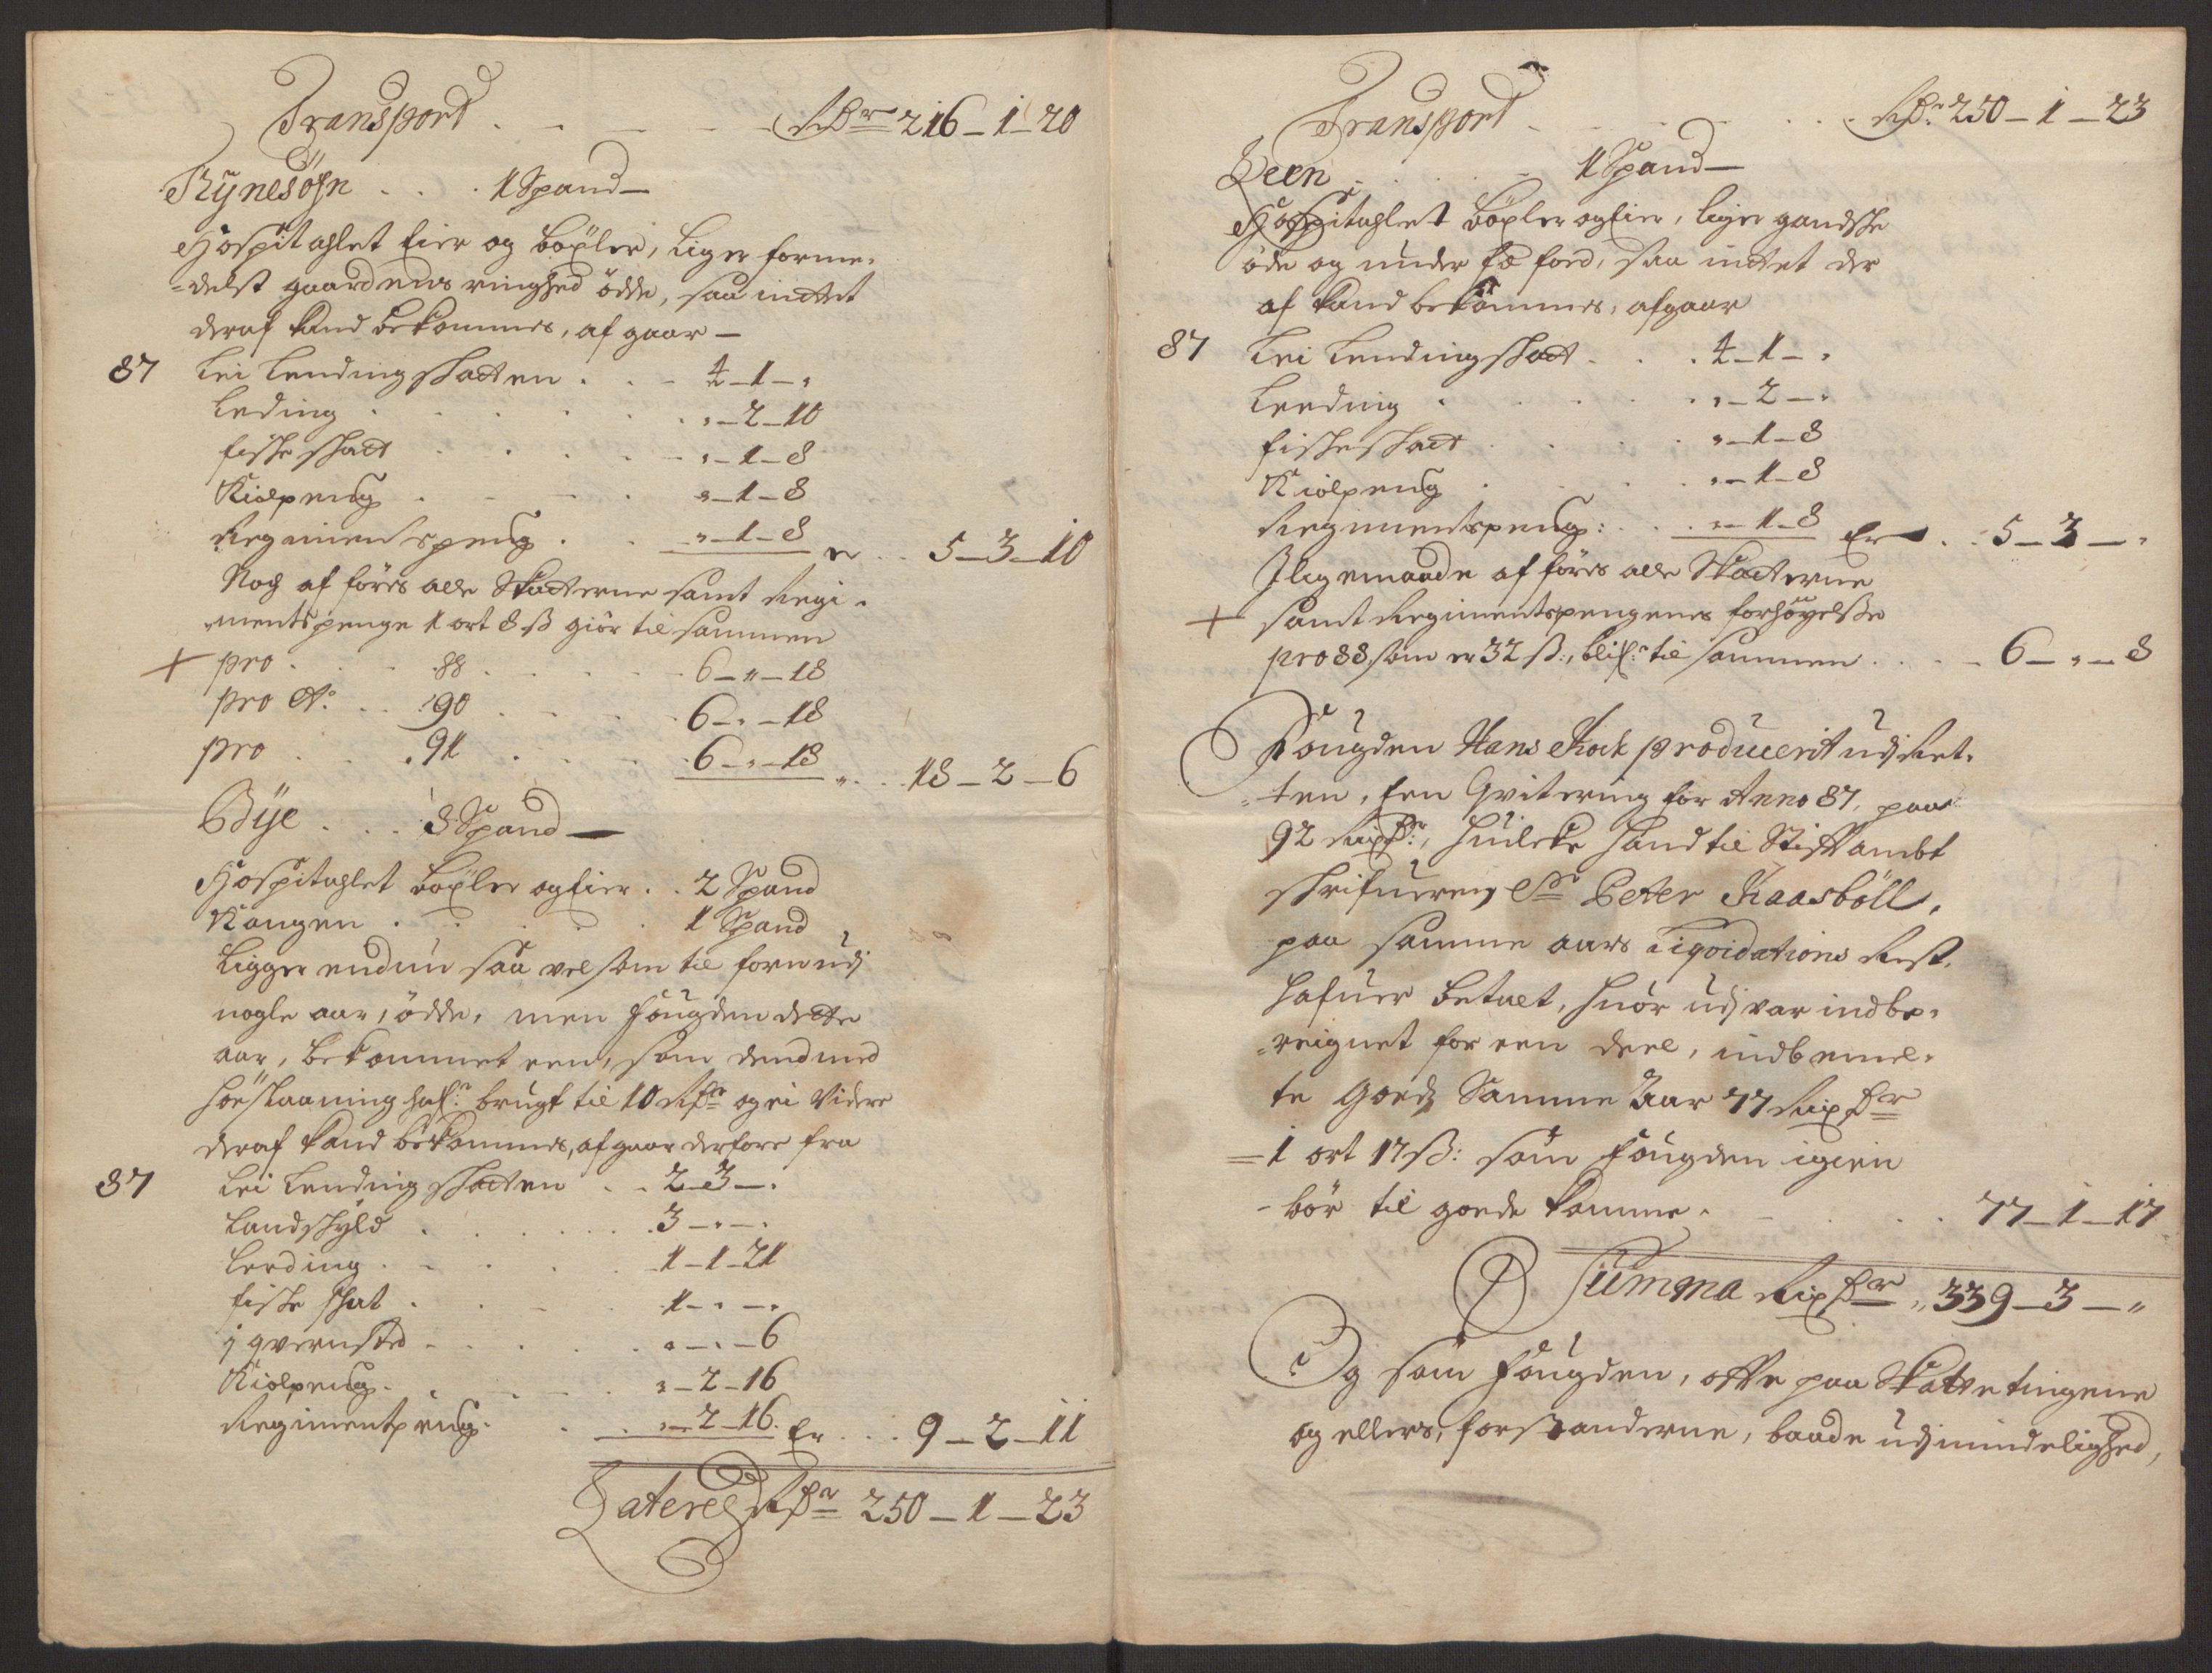 Transport . . . . Rdr 216 – 1 – 20
Rynesøgn . . . 1 Spand –
Hospitahlet Eier og böxler, liger forme-
-delst gaardens ringhed ödde, saa inttet
deraf kand bekommes, af gaar –
87 Lei Lendingskatten . . . 4 – 1 – „
Leding . . . . . „ – 2 – 10
fiske skatt . . . . . „ – 1 – 8
Kiolpeng . . . . „ – 1 – 8
Regimentspeng . . . „ – 1 – 8 er . . 5 – 3 – 10
Noch af föres alle Skatterne samt Regi-
mentspenge 1 ort 8 ß giör til sammen
+ pro . . . 88 . . . . 6 – „ – 18
pro Ao. . . 90 . . . . 6 – „ – 18
pro . . . 91 . . . . 6 – „ – 18 „ . . . 18 – 2 – 6
Bÿe . . . 3 Spand –
Hospitahlet böxler og Eier . . 2 Spand
Kongen . . . . . 1 Spand
Ligger endnu saa vel som til forn udj
nogle aar, ödde, men fougden dette
aar, bekommet een, som dend med
höeslaaning hafr. brugt til 10 Rdr og ei Videre
deraf kand bekommes, af gaar derfore fra
87 Lei Lendingskatten . . 2 – 3 – „
Landskyld . . . . . 3 – „ – „
Leeding . . . . . 1 – 1 – 21
fiske skat . . . . 1 – „ – „
j qvernsted . . . . . „ – „ – 6
Kiolpeng . . . . „ – 2 – 16
Regimentpeng . . . „ – 2 – 16. Er . . . 9 – 2 – 11
Lateris Rdr 250 – 1 – 23
Transport . . . . . Rdr 250 – 1 – 23
Veen . . . . 1 Spand –
Hospitahlet böxler og Eier, liger gandske
öde og under fæ foed, saa inttet der
af kand bekommes, afgaar
87 Lei Lendingskatt . . . 4 – 1 – „
Leeding . . . . „ – 2 – „
fiskeskatt . . . . „ – 1 – 8
Kiolpeng . . . . „ – 1 – 8
Regimentspeng: . . . „ – 1 – 8 Er . . 5 – 3 – „
Jligemaade af föres alle Skatterne
+ samt Regimentspengenes forhöyelsse
pro 88 som er 32 ß:, blifr. til sammen . . . . 6 – „ – 8
Fougden Hans Kock producerit udj Ret-
-ten, een Qvitering for Anno 87, paa
92 Rixdr:, huilcke hand til Stiftambt
skrifueren Sr Peter Kaasböll,
paa samme aars Liqvidations Rest,
hafuer betalt, huor udj var indbe-
-reignet for een deel, indbemel-
te Goeds Samme Aar 77 Rixdr
= 1 ort 17 ß: som fougden igien
- bör til goede komme . . . . . 77 – 1 – 17
Summa Rixdr „ 339 – 3 – „
Og som fougden, offte paa Skattetingene
og ellers, forstanderne, baade udj mindelighed,